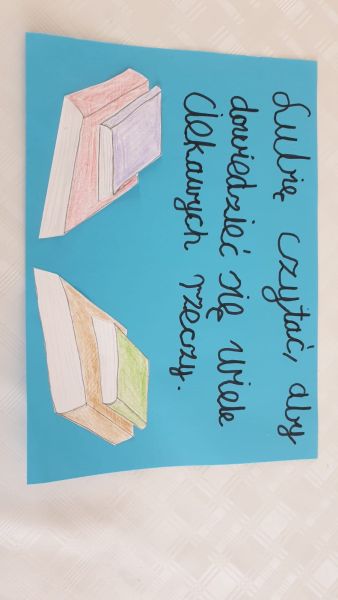 Lubię czytać, aby
dowiedzieć się wiele
ciekawych rzeczy.